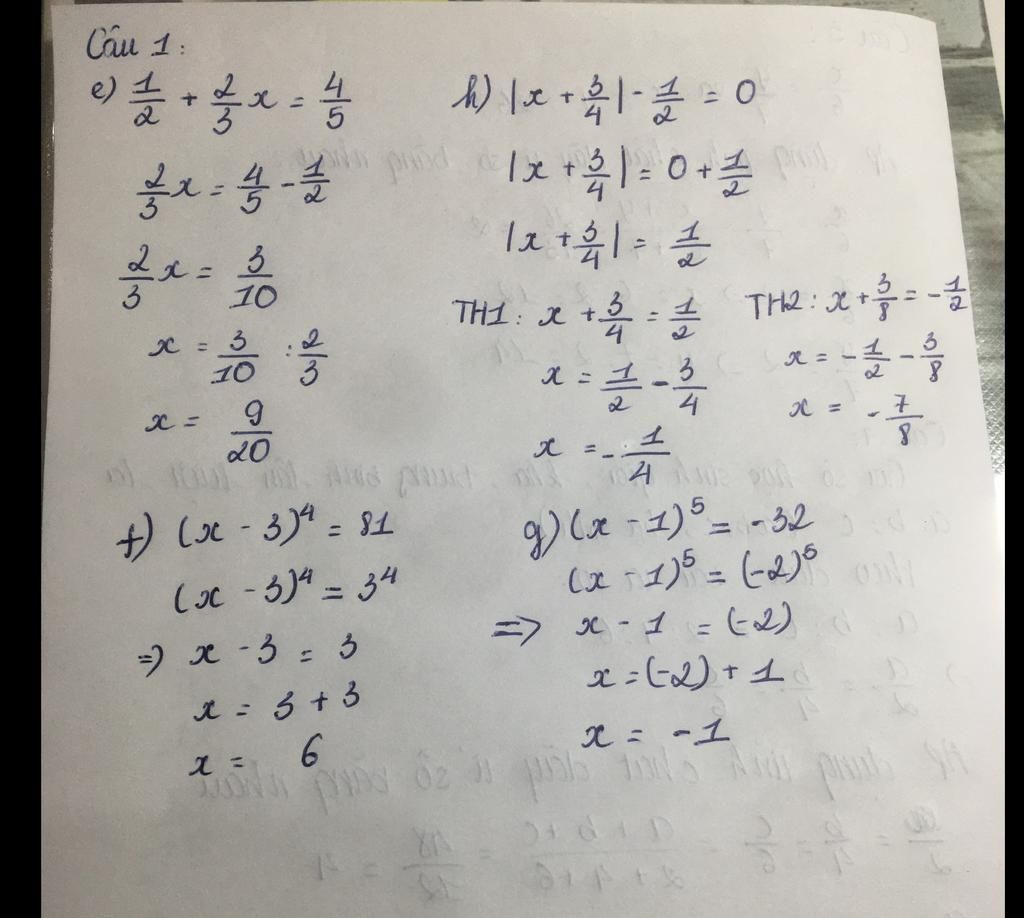 Câu 1:
e) 1/2 + 2/3 x = 4/5
2/3 x = 4/5 - 1/2
2/3 x = 3/10
x = 3/10 : 2/3
x = 9/20
h) |x + 3/4| - 1/2 = 0
|x + 3/4| = 0 + 1/2
|x + 3/4| = 1/2
TH1: x + 3/4 = 1/2
x = 1/2 - 3/4
x = -1/4
TH2: x + 3/8 = -1/2
x = -1/2 - 3/8
x = -7/8
f) (x - 3)⁴ = 81
(x - 3)⁴ = 3⁴
=) x - 3 = 3
x = 3 + 3
x = 6
g) (x - 1)⁵ = -32
(x - 1)⁵ = (-2)⁵
=> x - 1 = (-2)
x = (-2) + 1
x = -1